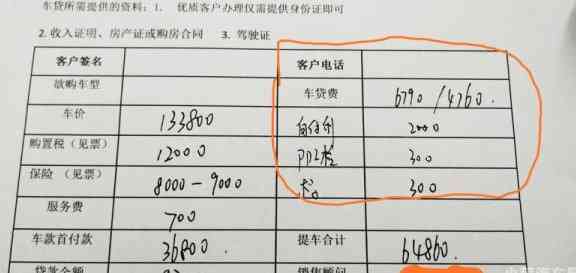 车贷所需提供的资料：1. 优质客户办理仅需提供身份证即可
2. 收入证明、房产证或购房合同 3. 驾驶证
客户签名 客户电话
欲购车型 车贷费 6790/4760.
车价 133800 2000
购置税（见票） 12000 300
保险（见票） 8000-9000 300
服务费 700
车款首付款 36800. 提车合计 64860.
贷款金额 销售顾问